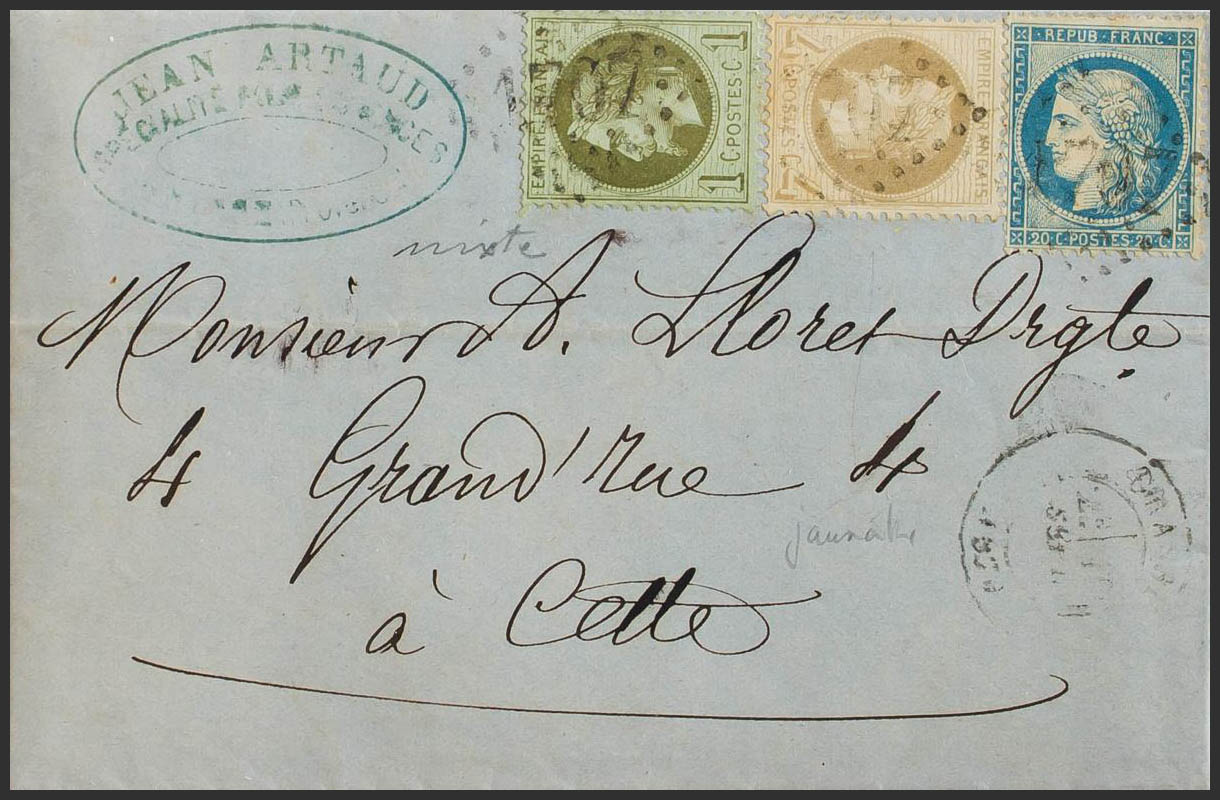 JEAN ARTAUD
EMPIRE FRANÇAIS
1 C POSTES C 1
EMPIRE FRANÇAIS
4 C POSTES C 4
REPUB FRANC
20 C POSTES 20 C
mixte
Monsieur A. Lloret Drgte
4 Grand'rue 4
jaunâtre
à Cette